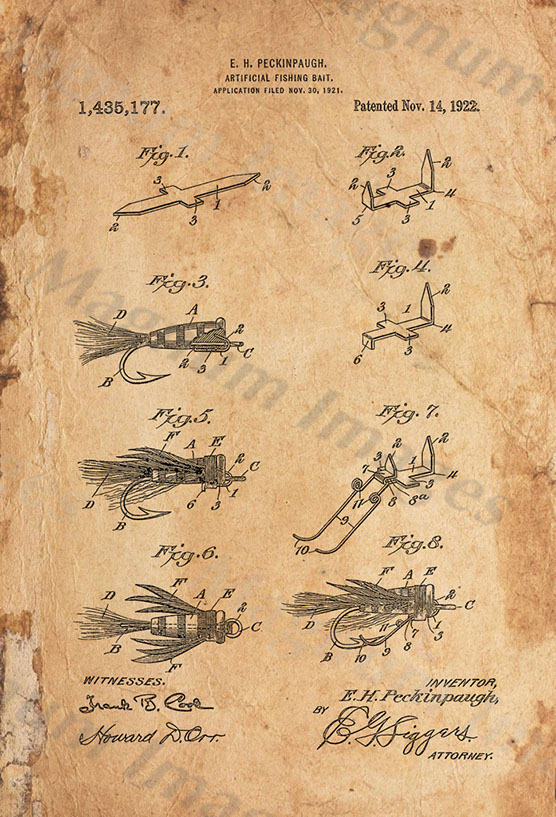 E. H. PECKINPAUGH.
ARTIFICIAL FISHING BAIT.
APPLICATION FILED NOV. 30, 1921.
1,435,177.
Patented Nov. 14, 1922.
Fig. 1.
3
2
1
3
2
Fig. 2.
2
3
2
4
1
5
3
Fig. 3.
D
A
2
C
2
3
1
B
Fig. 4.
3
1
2
4
3
6
Fig. 5.
F
A
E
C
D
B
6
3
1
Fig. 7.
3
1
2
7
4
3
11
8
8ª
9
10
Fig. 6.
D
F
A
E
2
C
B
F
Fig. 8.
F
A
E
D
C
1
B
10
9
11
8
7
3
WITNESSES.
Frank B. Cool
Howard D. Orr.
INVENTOR,
E. H. Peckinpaugh,
BY
E. G. Siggers.
ATTORNEY.
Magnum Images